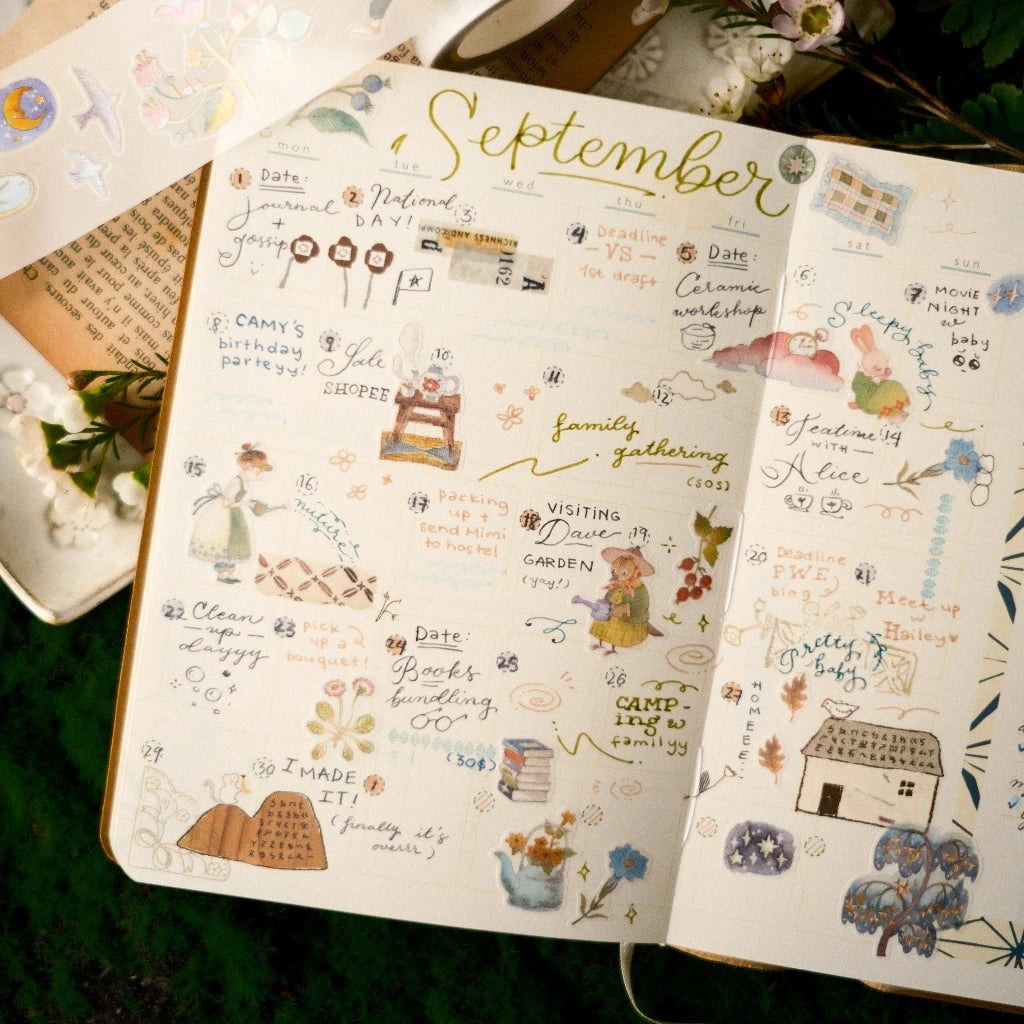 September
mon
tue
wed
thu
fri
sat
sun
1 Date:
journal
+
gossip
2 National
DAY!
3
RICHNESS AND COMP
d
1162
A
4 Deadline
— VS —
1st draft
5 Date:
Ceramic
workshop
6
Sleepy baby
7 MOVIE
NIGHT
w
baby
8 CAMY'S
birthday
parteyy!
9 Sale
SHOPEE
10
11
12
family
gathering
(SOS)
13 Teatime
WITH —
Alice
14
15
16
nature
17 packing
up +
send Mimi
to hostel
18 VISITING
Dave
GARDEN
(yay!)
19
20 Deadline
PWE
blog
21
Meet up
w
Hailey
Pretty
baby
22 Clean
— up —
dayyy
23 pick
up a
bouquet!
24 Date:
Books
bundling
(30$)
25
26
CAMP-
ing w
familyy
27
HOMEEE..
29
30 I MADE
IT!
(finally it's
overrr)